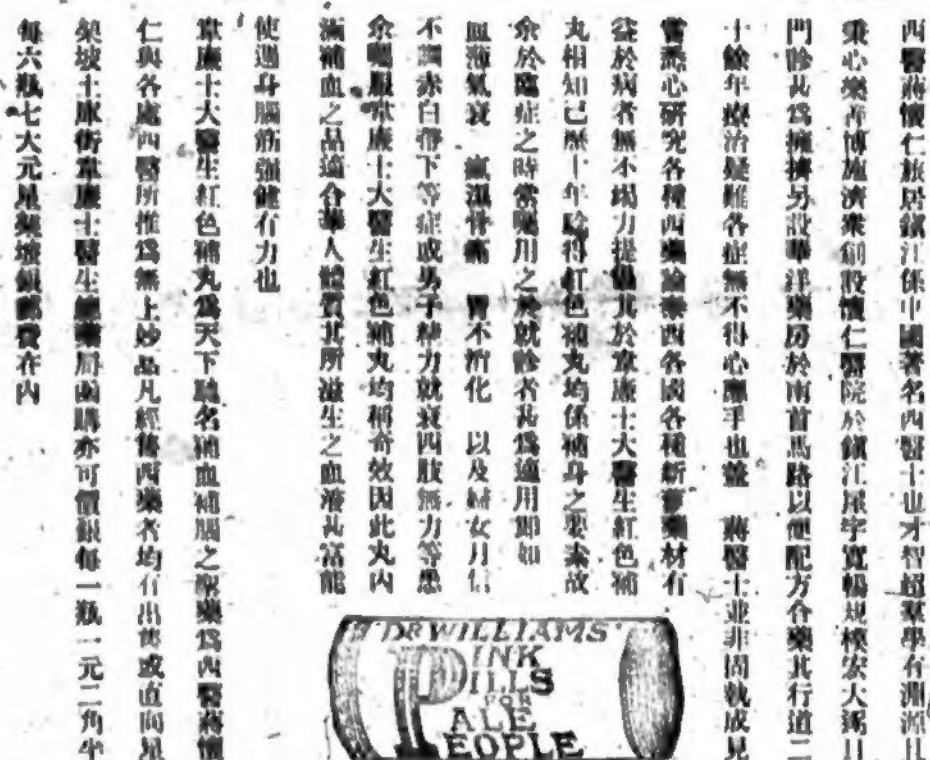 西醫蔣懷仁旅居鎮江係中國著名西醫士也才智超羣學有淵源且
秉心樂善博施濟衆創設懷仁醫院於鎮江屋宇寬暢規模宏大逐日
門診甚爲擁擠另設華洋藥房於南首馬路以便配方合藥其行道二
十餘年療治疑難各症無不得心應手也蓋 蔣醫士並非固執成見
嘗悉心研究各種西藥論泰西各國各種新夢藥材有
益於病者無不竭力提倡其於韋廉士大醫生紅色補
丸相知已歷十年驗得紅色補丸均係補身之要素故
余於臨症之時常囑用之於就診者甚爲適用即如
血薄氣衰 瘋濕骨痛 胃不消化 以及婦女月信
不調赤白帶下等症或男子精力就衰四肢無力等患
余囑服韋廉士大醫生紅色補丸均稱奇效因此丸內
滿補血之品適合華人體質其所滋生之血液甚富能
使週身腦筋强健有力也
韋廉士大醫生紅色補丸爲天下馳名補血補腦之聖藥爲西醫蔣懷
仁與各處西醫所推爲無上妙品凡經售西藥者均有出售或直向星
架坡土庫街韋廉士醫生總藥局函購亦可價銀每一瓶一元二角半
每六瓶七大元星架坡銀郵費在內
DR WILLIAMS'
PINK
PILLS
FOR
PALE
PEOPLE